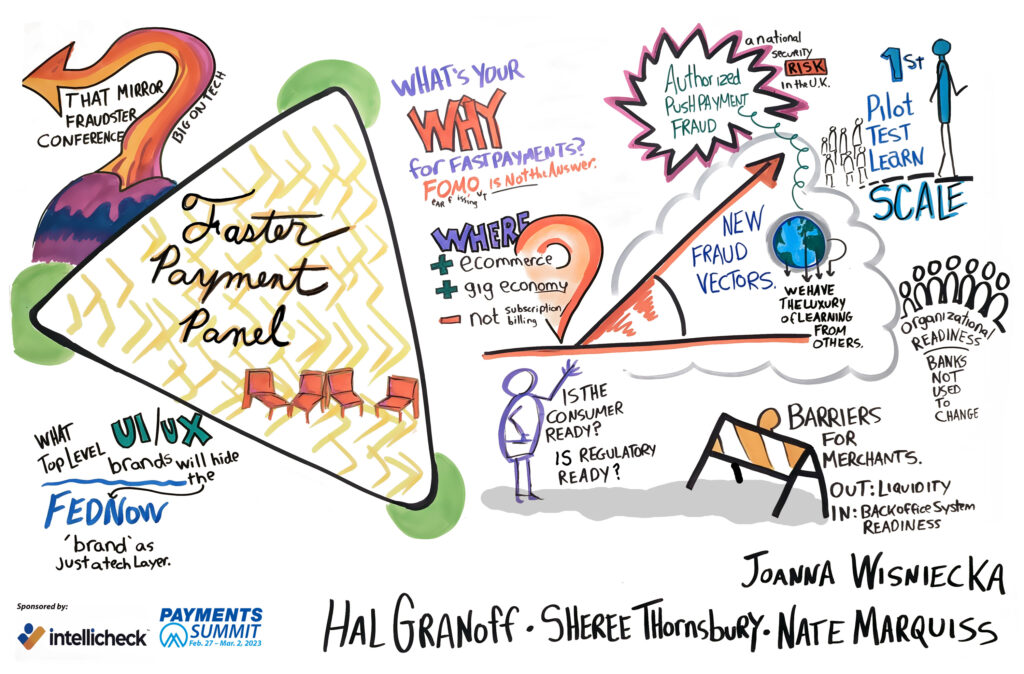 THAT MIRROR
FRAUDSTER
CONFERENCE
BIG ON TECH
Faster
Payment
Panel
WHAT
TOP LEVEL
UI/UX
brands will hide
the
FEDNOW
'brand' as
Just a tech Layer.
WHAT'S YOUR
WHY
for FAST PAYMENTS?
FOMO is Not the Answer.
ear f issing ut
WHERE
+ ecommerce
+ gig economy
- not subscription
billing
Authorized
PUSH PAYMENT
FRAUD
a national
SECURITY
RISK
in the U.K.
NEW
FRAUD
VECTORS.
WE HAVE
THE LUXURY
of LEARNING
FROM
OTHERS.
1st
Pilot
TEST
LEARN
SCALE
ORGANIZATIONAL
READINESS
BANKS
NOT
USED
TO
CHANGE
IS THE
CONSUMER
READY?
IS REGULATORY
READY?
BARRIERS
FOR
MERCHANTS.
OUT: LIQUIDITY
IN: BACKOFFICE SYSTEM
READINESS
JOANNA WISNIECKA
HAL GRANOFF · SHEREE THORNSBURY · NATE MARQUISS
Sponsored by:
intellicheck
PAYMENTS
SUMMIT
Feb. 27 – Mar. 2, 2023